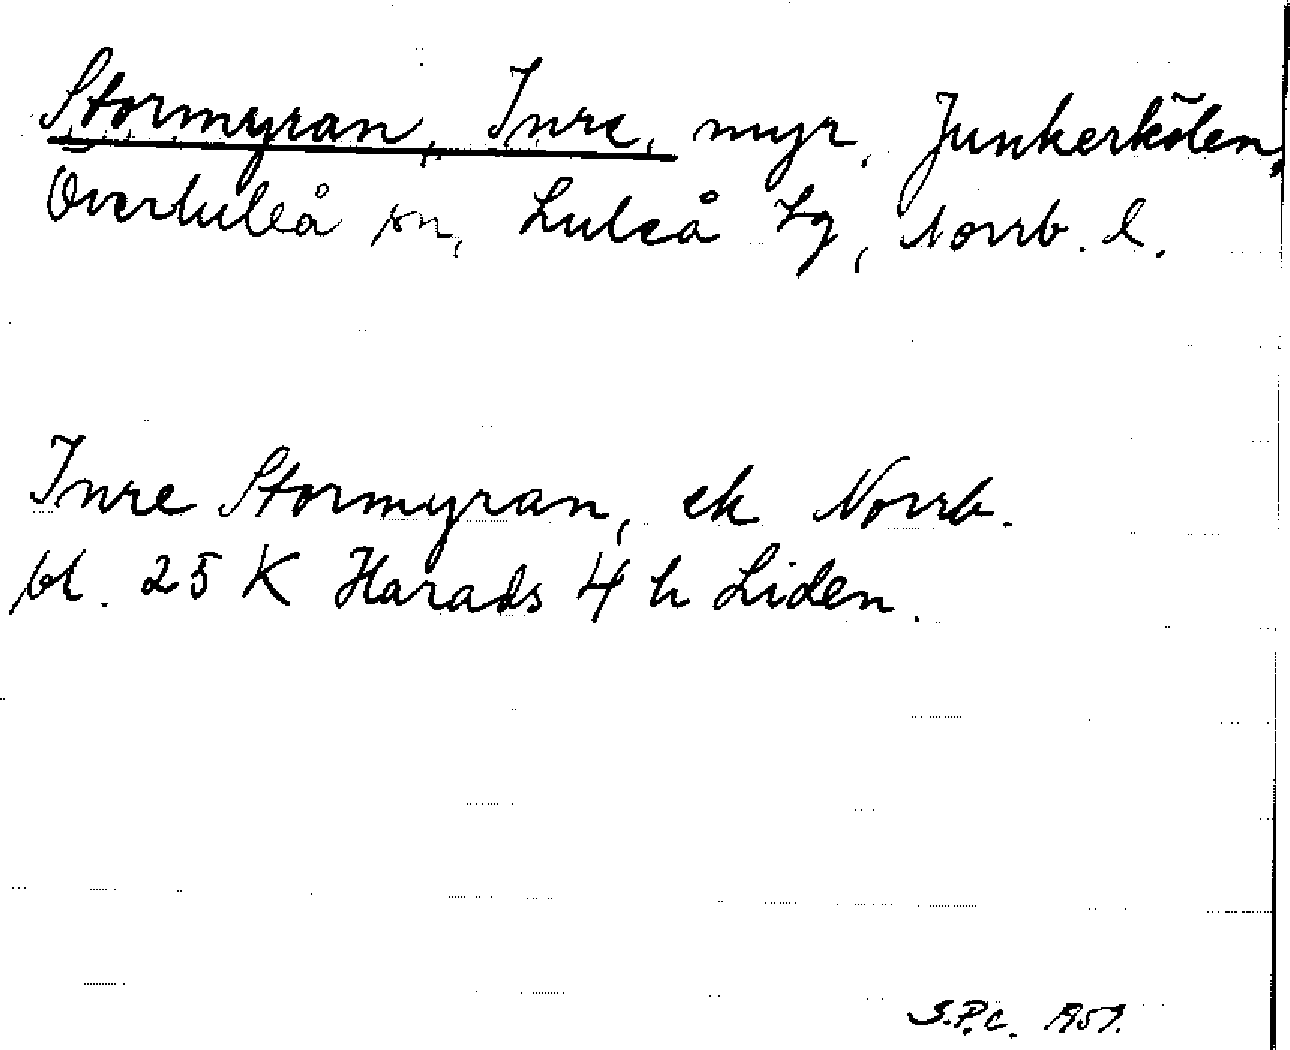 Stormyran, Inre, myr, Junkerkölen,
Överluleå sn, Luleå tg, Norrb. l.
Inre Stormyran, ek Norrb.
bl. 25 K Harads 4 h Liden.
S.P.C.